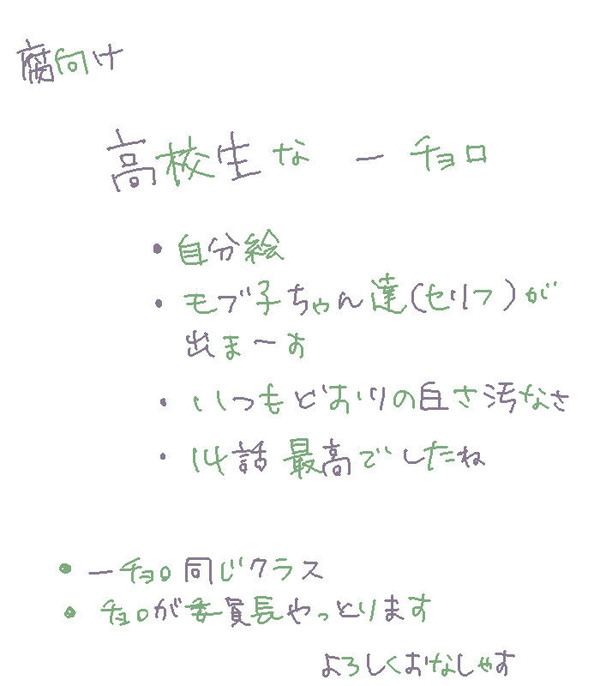 腐向け
高校生な 一チョロ
・自分絵
・モブ子ちゃん達(セリフ)が
出まーす
・いつもどおりの白さ汚なさ
・14話 最高でしたね
・一チョロ同じクラス
・チョロが委員長やっとります
よろしくおなしゃす